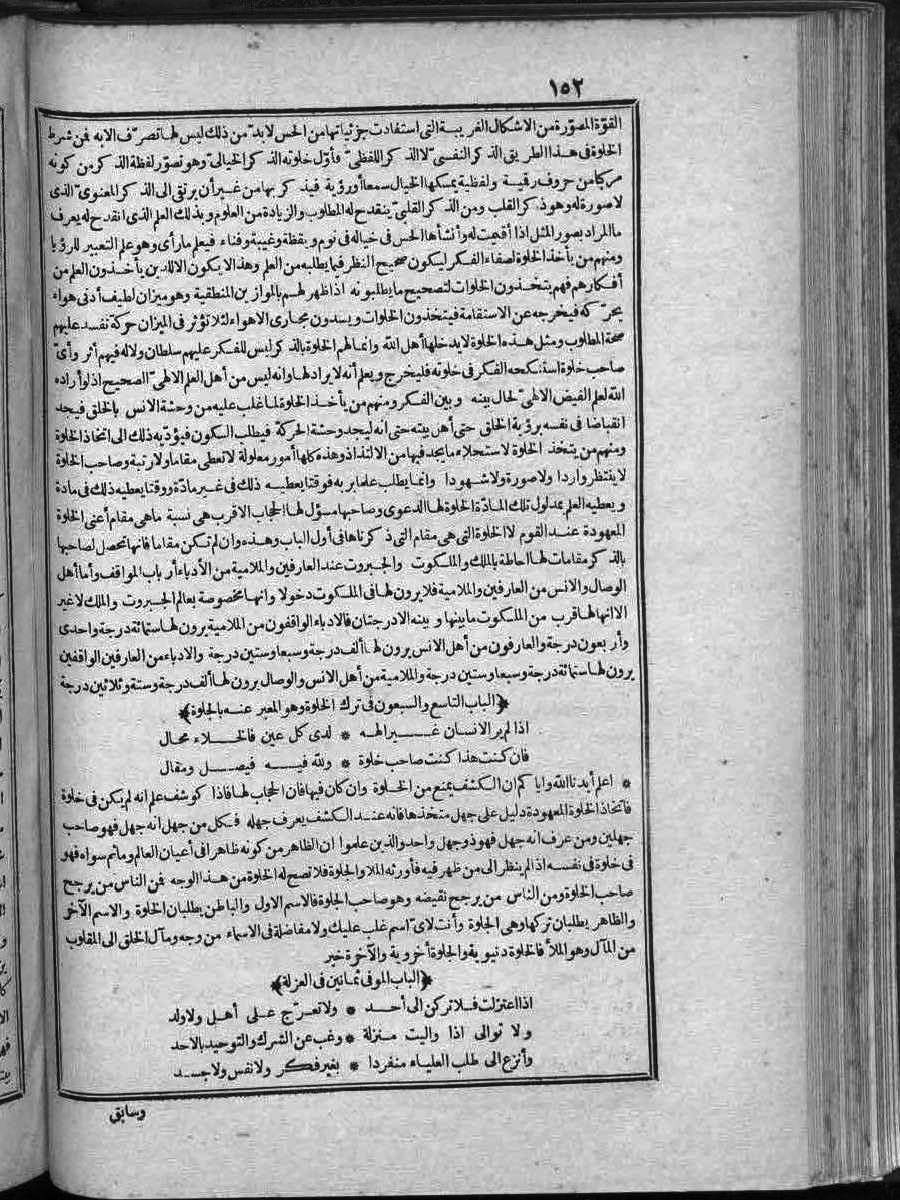 ١٥٢
القوة المصورة من الاشكال الغريبة التى استفادت جزئياتها من الحس لا بد من ذلك ليس لها تصرف الا به فمن شرط
الخلوة فى هذا الطريق الذكر النفسى لا الذكر اللفظى فأول خلوته الذكر الخيالى وهو تصور لفظة الذكر من كونه
مركبا من حروف رقمية ولفظية يمسكها الخيال سمعا أو رؤية فيذكر بها من غير أن يرتقى الى الذكر المعنوى الذى
لا صورة له وهو ذكر القلب ومن الذكر القلبى ينقدح له المطلوب والزيادة من العلوم وبذلك العلم الذى انقدح له يعرف
ما المراد بصور المثل اذا أقيمت له وأنشأها الحس فى خياله فى نوم ويقظة وغيبة وفناء فيعلم ما رأى وهو علم التعبير للرؤيا
ومنهم من يأخذ الخلوة لصفاء الفكر ليكون صحيح النظر فيما يطلبه من العلم وهذا لا يكون الا للذين يأخذون العلم من
أفكارهم فهم يتخذون الخلوات لتصحيح ما يطلبونه اذا ظهر لهم بالموازين المنطقية وهو ميزان لطيف أدنى هواء
يحركه فيخرجه عن الاستقامة فيتخذون الخلوات ويسدون مجارى الاهواء لئلا تؤثر فى الميزان حركة تفسد عليهم
صحة المطلوب ومثل هذه الخلوة لا يدخلها أهل الله وانما لهم الخلوة بالذكر ليس للفكر عليهم سلطان ولا له فيهم أثر وأى
صاحب خلوة استنكحه الفكر فى خلوته فليخرج ويعلم أنه لا يراد لها وانه ليس من أهل العلم الالهى الصحيح اذ لو أراده
الله لعلم الفيض الالهى لحال بينه وبين الفكر ومنهم من يأخذ الخلوة لما غلب عليه من وحشة الانس بالخلق فيجد
انقباضا فى نفسه برؤية الخلق حتى أهل بيته حتى انه ليجد وحشة الحركة فيطلب السكون فيؤديه ذلك الى اتخاذ الخلوة
ومنهم من يتخذ الخلوة لاستحلاء ما يجد فيها من الالتذاذ وهذه كلها أمور معلولة لا تعطى مقاما ولا رتبة وصاحب الخلوة
لا ينتظر واردا ولا صورة ولا شهودا وانما يطلب علما بربه فوقتا يعطيه ذلك فى غير مادة ووقتا يعطيه ذلك فى مادة
ويعطيه العلم بمدلول تلك المادة الخلوة لها الدعوى وصاحبها مسؤل لها الحجاب الاقرب هى نسبة ما هى مقام أعنى الخلوة
المعهودة عند القوم لا الخلوة التى هى مقام التى ذكرناها فى أول الباب وهذه وان لم تكن مقاما فانها تحصل لصاحبها
بالذكر مقامات لها احاطة بالملك والملكوت والجبروت عند العارفين والملامية من الأدباء أرباب المواقف وأما أهل
الوصال والانس من العارفين والملامية فلا يرون لها فى الملكوت دخولا وانها مخصوصة بعالم الجبروت والملك لا غير
الا انها لها قرب من الملكوت ما بينها وبينه الا درجتان فالادباء الواقفون من الملامية يرون لها ستمائة درجة واحدى
وأربعون درجة والعارفون من أهل الانس يرون لها ألف درجة وسبعا وستين درجة والادباء من العارفين الواقفين
يرون لها ستمائة درجة وسبعا وستين درجة والملامية من أهل الانس والوصال يرون لها ألف درجة وستة وثلاثين درجة
﴿الباب التاسع والسبعون فى ترك الخلوة وهو المعبر عنه بالجلوة﴾
اذا لم ير الانسان غير الهه * لدى كل عين فالخلاء محال
فان كنت هذا كنت صاحب خلوة * ولله فيه فيصل ومقال
* اعلم أيدنا الله وايا كم ان الكشف يمنع من الخلوة وان كان فيها فان الحجاب لها فاذا كوشف علم انه لم يكن فى خلوة
فاتخاذ الخلوة المعهودة دليل على جهل متخذها فانه عند الكشف يعرف جهله فكل من جهل انه جهل فهو صاحب
جهلين ومن عرف انه جهل فهو ذو جهل واحد والذين علموا ان الظاهر من كونه ظاهرا فى أعيان العالم وما ثم سواه فهو
فى خلوة فى نفسه اذ الم ينظر الى من ظهر فيه فأورثه الملا والجلوة فلا تصح له الخلوة من هذا الوجه فمن الناس من يرجح
صاحب الخلوة ومن الناس من يرجح نقيضه وهو صاحب الجلوة فالاسم الاول والباطن يطلبان الخلوة والاسم الآخر
والظاهر يطلبان تركها وهى الجلوة وأنت لأى اسم غلب عليك ولا مفاضلة فى الاسماء من وجه ومآل الخلق الى المقلوب
من المآل وهو الملأ فالخلوة دنيوية والجلوة أخروية والآخرة خير
﴿الباب الموفى ثمانين فى العزلة﴾
اذا اعتزلت فلا تركن الى أحد * ولا تعرج على أهل ولا ولد
ولا توالى اذا واليت منزلة * وغب عن الشرك والتوحيد بالاحد
وأنزع الى طلب العلياء منفردا * بغير فكر ولا نفس ولا جسد
وسابق